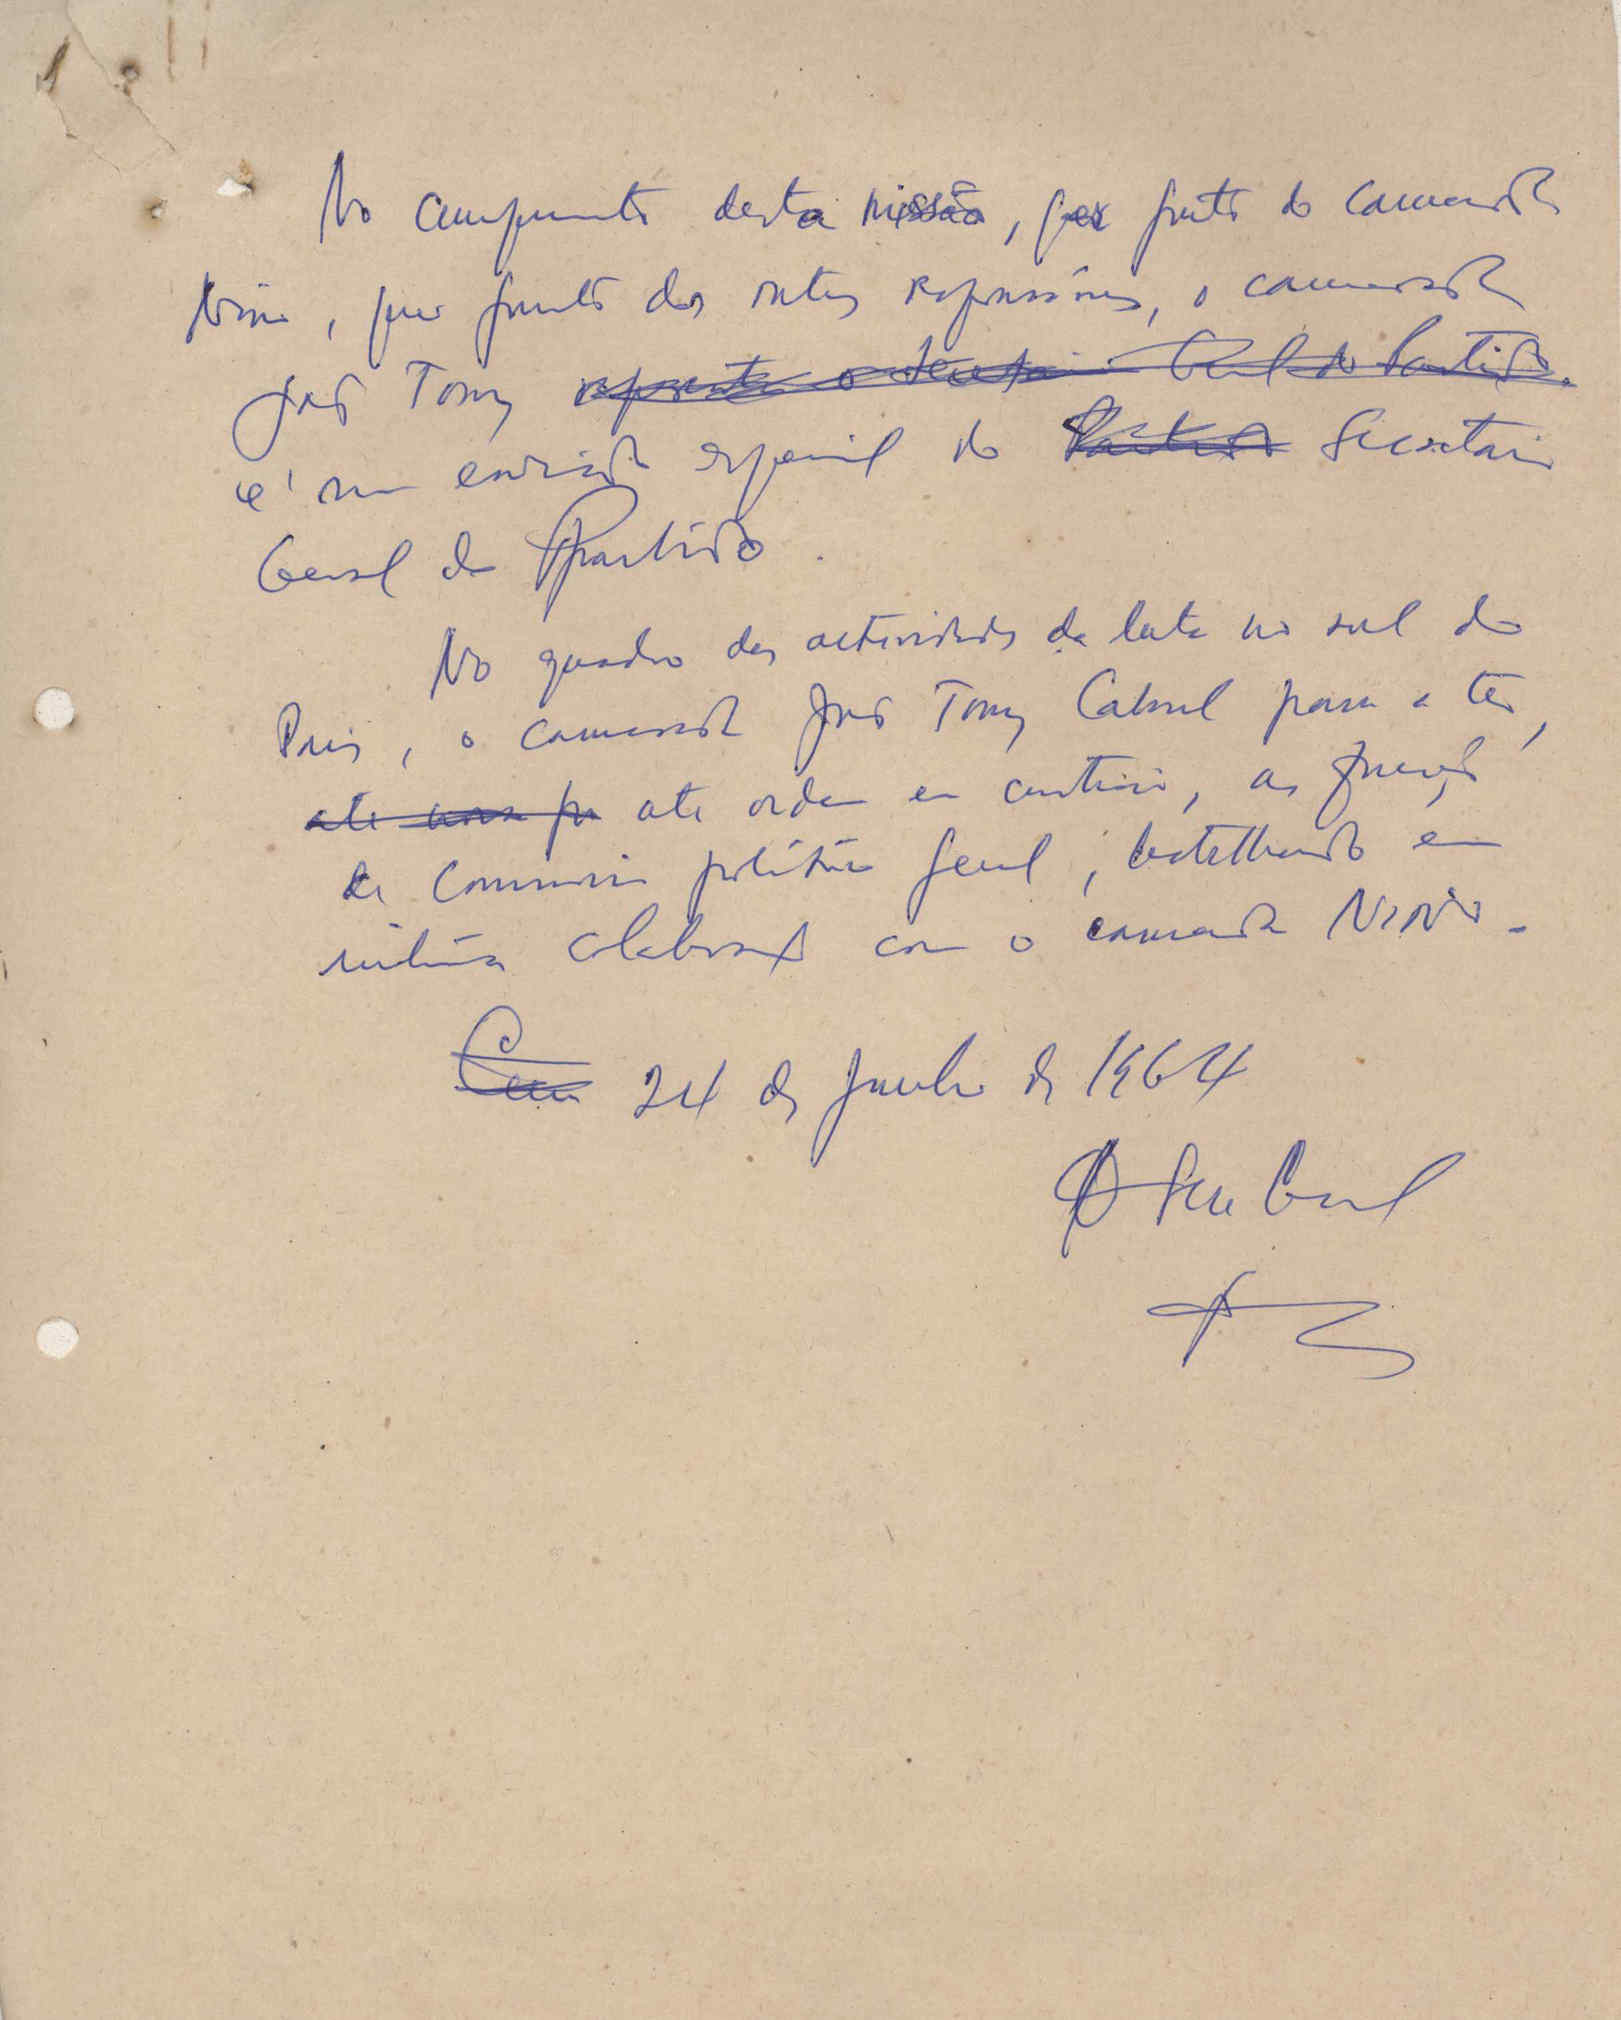 No cumprimento desta missão, quer junto do camarada
Nino, quer junto dos outros responsáveis, o camarada
José Tomy representa o Secretário Geral do Partido.
é um enviado especial do Partido Secretário
Geral do Partido.
No quadro das actividades da luta no sul do
País, o camarada José Tomy Cabral passa a ter,
até nova até ordem em contrário, as funções
de Comissário político geral, trabalhando em
íntima colaboração com o camarada NINO.
24 de Junho de 1964
O Secr Geral